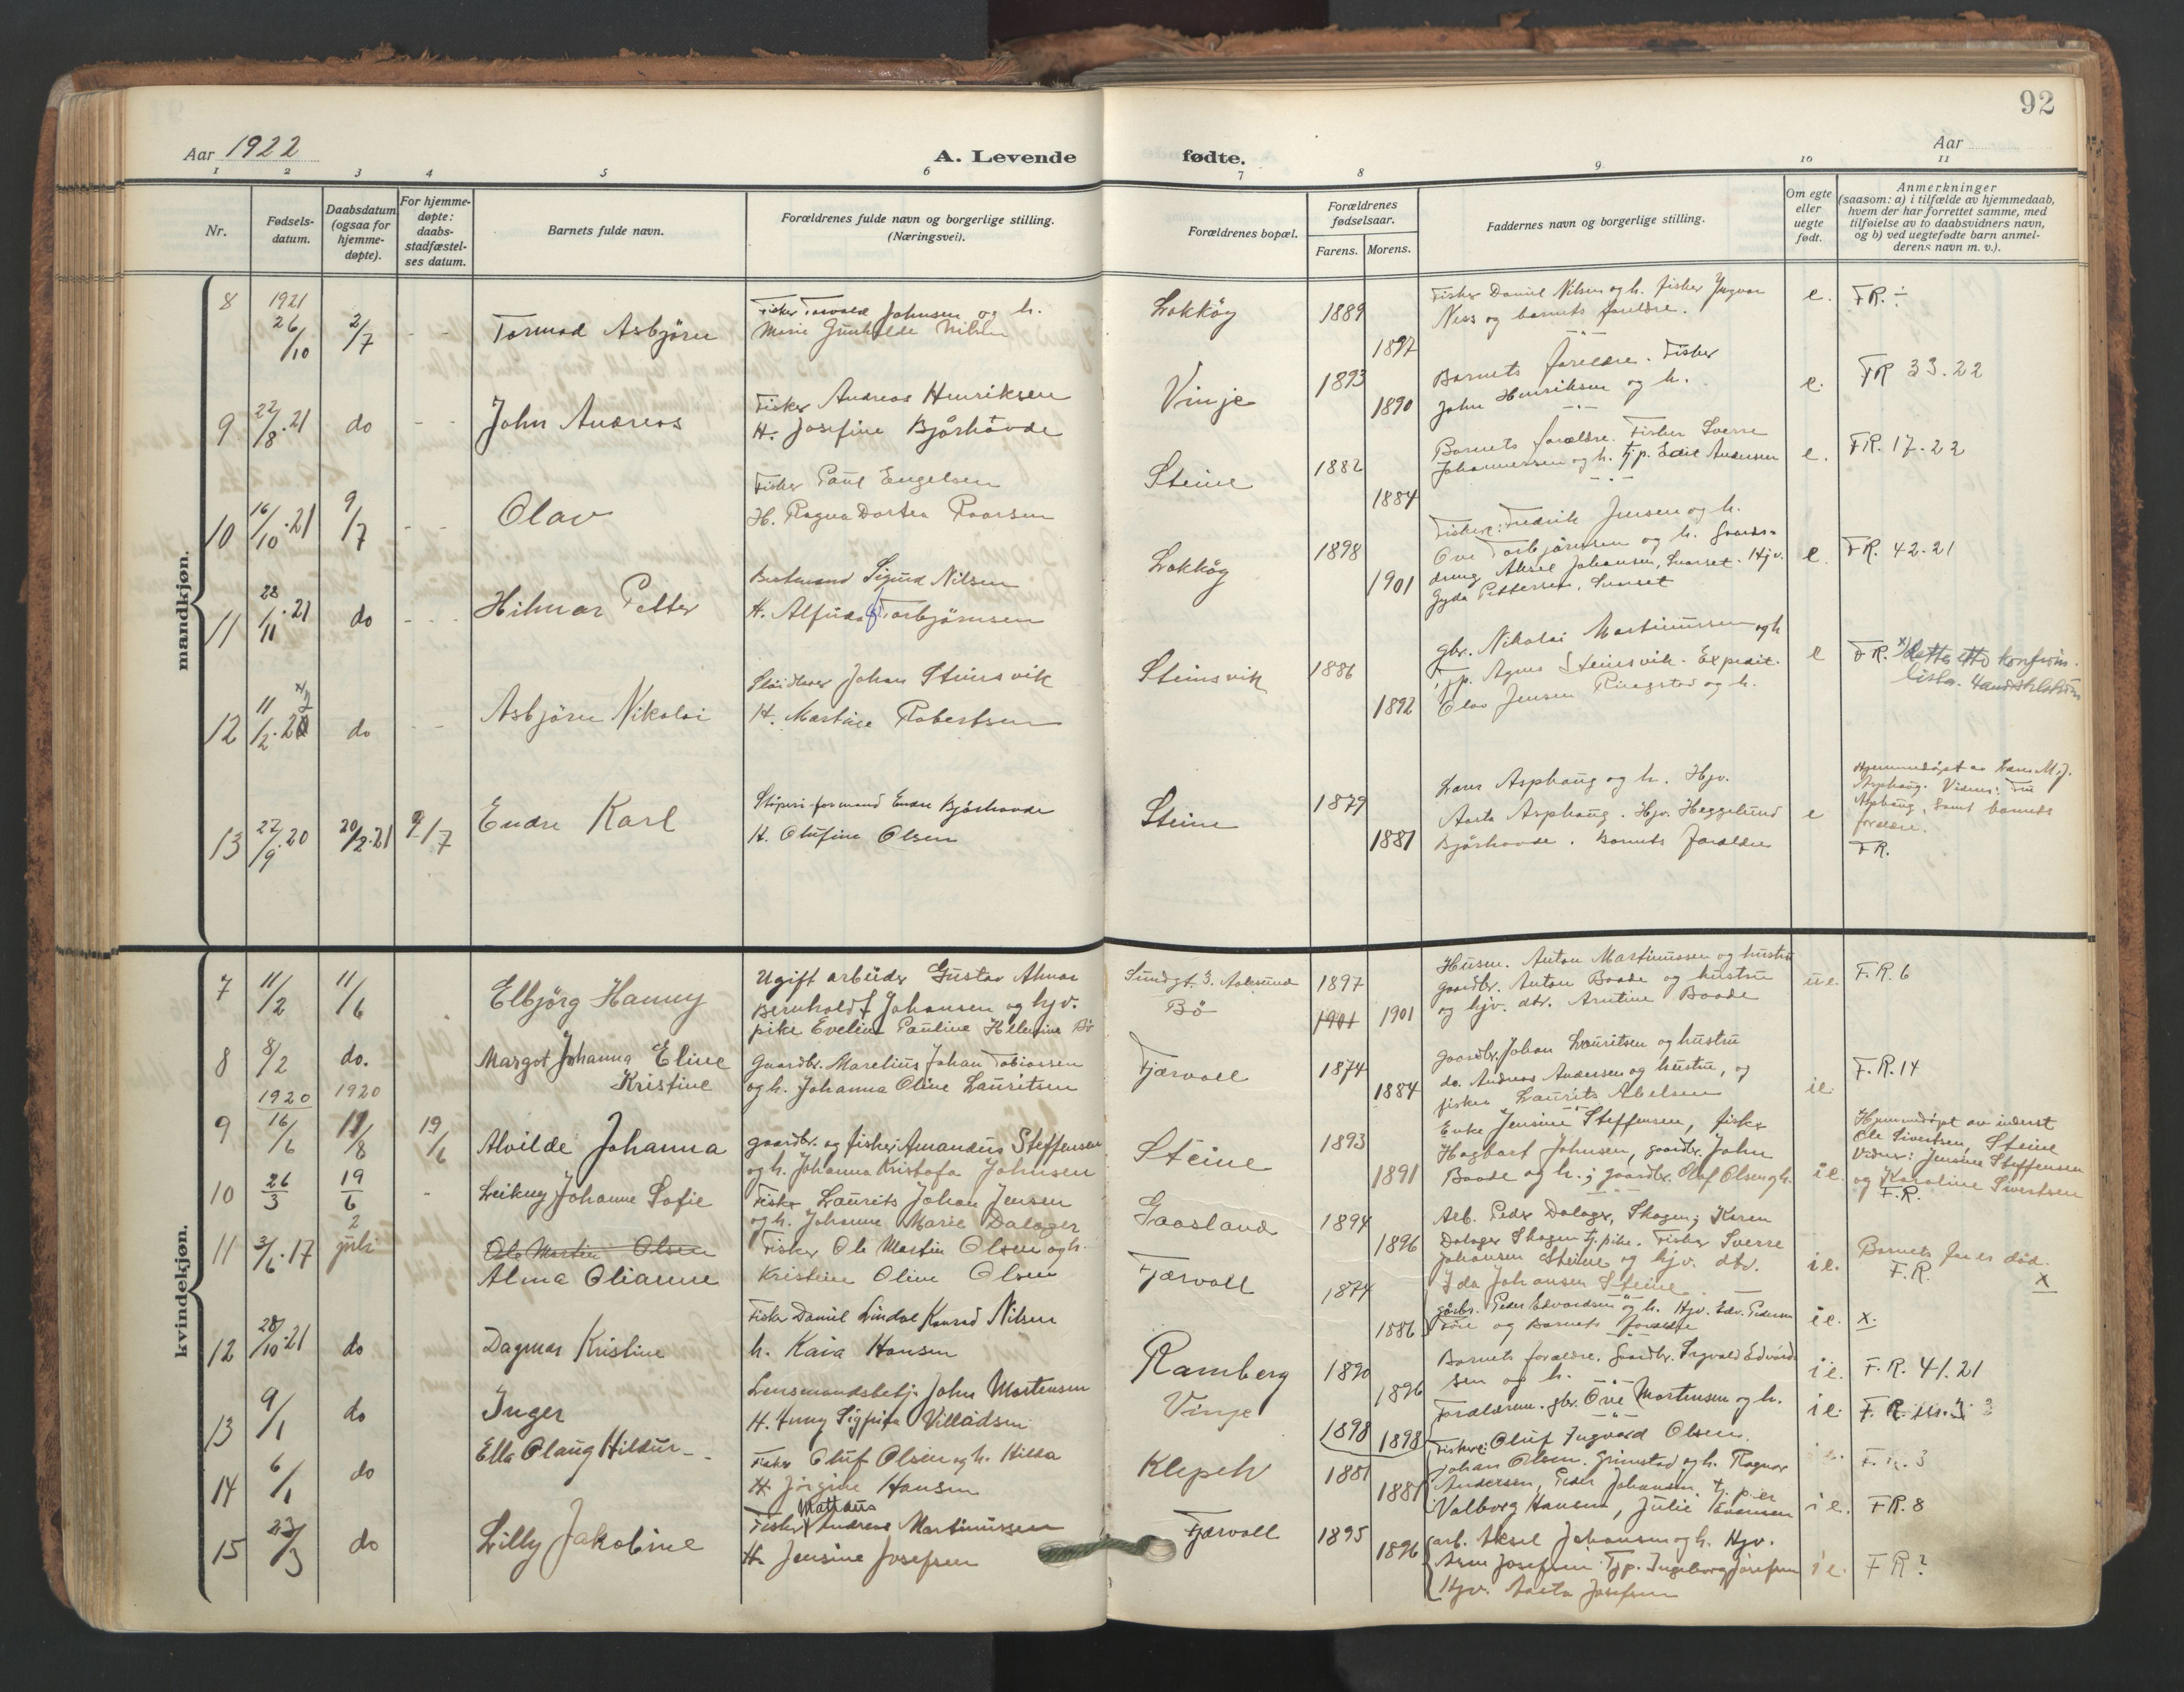 92
Aar 1922
A. Levende fødte.
Aar
1 2 3 4 5 6 7 8 9 10 11
Nr.
Fødsels-
datum.
Daabsdatum
(ogsaa for
hjemme-
døpte).
For hjemme-
døpte:
daabs-
stadfæstel-
ses datum.
Barnets fulde navn.
Forældrenes fulde navn og borgerlige stilling.
(Næringsvei).
Forældrenes bopæl.
Forældrenes
fødselsaar.
Farens. Morens.
Faddernes navn og borgerlige stilling.
Om egte
eller
uegte
født.
Anmerkninger
(saasom: a) i tilfælde av hjemmedaab,
hvem der har forrettet samme, med
tilføielse av to daabsvidners navn,
og b) ved uegtefødte barn anmel-
derens navn m. v.).
mandkjøn.
8 1921 26/10 2/7 - - Tormod Asbjörn
Fisker Torvald Johnsen og h.
Marie Gunhilde Nilsen
Lokköy 1889 1897
Fisker Daniel Nilsen og h. fisker Yngvar
Ness og barnets forældre.
e. FR. ÷
9 22/8.21 do - - John Andreas
Fisker Andreas Henriksen
H. Josefine Bjørhovde
Vinje 1893 1890
Barnets forældre. Fisker
John Henriksen og h.
e. FR 33.22
10 16/10.21 9/7 - - Olav
Fisker Paul Engelsen
H. Ragna Dortea Roarsen
Steine 1882 1884
Barnets forældre. Fisker Sverre
Johannessen og h. tj.p. Edel Andersen
e. FR. 17.22
11 28/11.21 do - - - Hilmar Petter
Bestmand Sigurd Nilsen
H. Alfrida Torbjørnsen
Lokköy 1898 1901
Fiskere: Fredrik Jensen og h.
Ove Torbjørnsen og h. Gaards-
dreng Aksel Johansen, Sunset. Hjv.
Gyda Pettersen, Sunset
e. FR. 42.21
12 11/2.20 do - - Asbjörn Nikolai
Johan Steinsvik
H. Martine Robertsen
Steinsvik 1886 1892
gbr. Nikolai Martinussen og h
Tjp. Agnes Steinsvik. Expedit.
Olav Jensen Ringstad og h.
e FR. x)
13 22/9.20 20/2.21 9/7 Endre Karl
Støperi-formand Endre Bjørhovde
H. Olufine Olsen
Steine 1879 1881
Lars Asphaug og h. Hjv.
Aasta Asphaug. Hjv. Heggelund
Bjørhovde. Barnets forældre
e
Hjemmedøpt av Lars M. J.
Asphaug. Vidner: Fru
Asphaug, samt barnets
forældre.
FR.
kvindekjøn.
7 11/2 11/6 Elbjörg Hanny
Ugift arbeider Gustav Almar
Bernholdt Johansen og hjv.
pike Eveline Pauline Helensine Bö
Sundgt. 3. Aalesund
Bö
1897 1901 1901
Husm. Anton Martinussen og hustru
gaardbr. Anton Boade og hustru
og hjv. dtr. Arntine Boade
u e. F.R. 6
8 8/2 do. Margot Johanna Eline
Kristine
Gaardbr. Marelius Johan Tobiassen
og h. Johanna Oline Lauritsen
Fjærvoll 1874 1884
gaardbr. Johan Lauritsen og hustru
do. Andreas Andersen og hustru, og
fisker Laurits Abelsen
i e. F.R. 14
1920 1920
9 16/6 11/8 19/6 Alvilde Johanna
gaardbr. og fisker Amandus Steffensen
og h. Johanna Kristofa Johnsen
Steine 1893 1891
Enke Jensine Steffensen, fisker
Hagbart Johnsen, gaardbr. John
Boade og h.; gaardbr. Olaf Olsen og h.
i e.
Hjemmedøpt av inderst
Ole Sivertsen, Steine
Vidner: Jensine Steffensen
og Karoline Sivertsen
F.R.
10 26/3 19/6 - Leikny Johanne Sofie
Fisker Laurits Johan Jensen
og h. Johanne Marie Dalager
Gaasland 1894 1896
Arb. Peder Dalager, Skagen; Karen
Dalager Skagen tj. pike. Fisker Sverre
Johansen Steine og hjv. dtr.
Ida Johansen Steine
i e. F.R.
11 3/6.17 2 juli Ole Martin Olsen
Alma Olianne
Fisker Ole Martin Olsen og h.
Kristine Oline Olsen
Fjærvoll 1874 1886
gårbr. Peder Edvardsen og h. Hjv. Edv. Pedersen
Töre og Barnets forældre
i e. x.
Barnets far er död.
x
12 28/10.21 do Dagmar Kristine
Fisker Daniel Lindal Konrad Nilsen
h. Kaia Hansen
Ramberg 1890 1896
Barnets forældre. Gaardbr. Sigvald Edvard-
sen og h.
i e. F.R. 41.21
13 9/1 do Inger
Lensmandsbetj. John Mortensen
H. Anny Sigfrida Villadsen
Vinje 1898 1898
Forældrene. gbr. Ove Mortensen og h.
i e. F.R.
14 6/1 do Ella Olaug Hildur -
Fisker Oluf Olsen og h. Hilda
H. Jörgine Hansen
Klepeh 1881 1881
Fiskere: Oluf Ingvard Olsen.
Johan Olsen. Grimstad og h. Ragnar
Andersen, Peder Johansen. tj.p.er
Valborg Hansen, Julie Evensen
i e. F.R. 3
FR. 8
15 23/3 do Lilly Jakobine
Mattæus
Fisker Andreas Martinussen
H. Jensine Josefsen
Fjærvoll 1895 1896
arb. Aksel Johansen og h. Hjv.
Arne Josefsen. Tjp. Ingeborg Josefsen
Hjv. Aasta Josefsen
i e. FR?